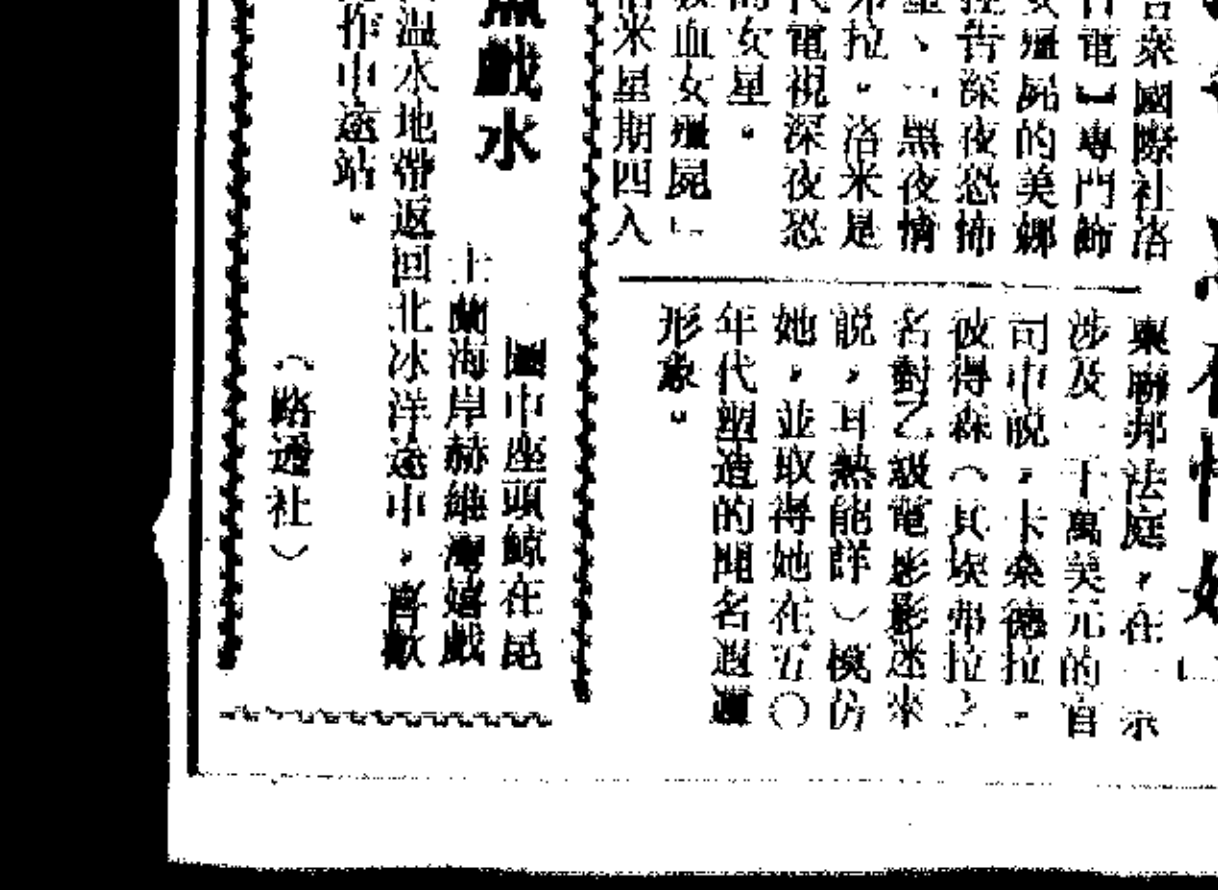 合衆國際社洛
日電】專門飾
女殭屍的美娜
控告深夜恐怖
、「黑夜情
弗拉。洛米是
代電視深夜恐
的女星。
吸血女殭屍」
洛米星期四入
東聯邦法庭,在一示
涉及二千萬美元的官
司中說,卡桑德拉.
彼得森(其埃弗拉之
名對乙級電影影迷來
説,耳熟能詳)模仿
她,並取得她在五〇
年代塑造的聞名遐邇
形象。
戲水
圖中座頭鯨在昆
士蘭海岸赫維灣嬉戲
溫水地帶返回北冰洋途中,喜歡
作中途站。
(路透社)